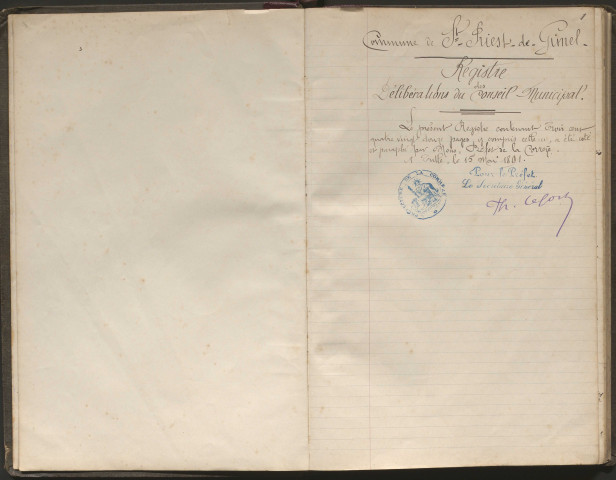 1
Commune de St Priest-de-Gimel.
Régistre
des
Délibérations du Conseil Municipal.
Le présent Registre contenant trois cent
quatre vingt douze pages y compris celle-ci, a été coté
et paraphé par Nous, Préfet de la Corrèze.
Tulle, le 15 Mai 1891.
Pour le Préfet
Le Secrétaire Général
DE LA CORRÈZE